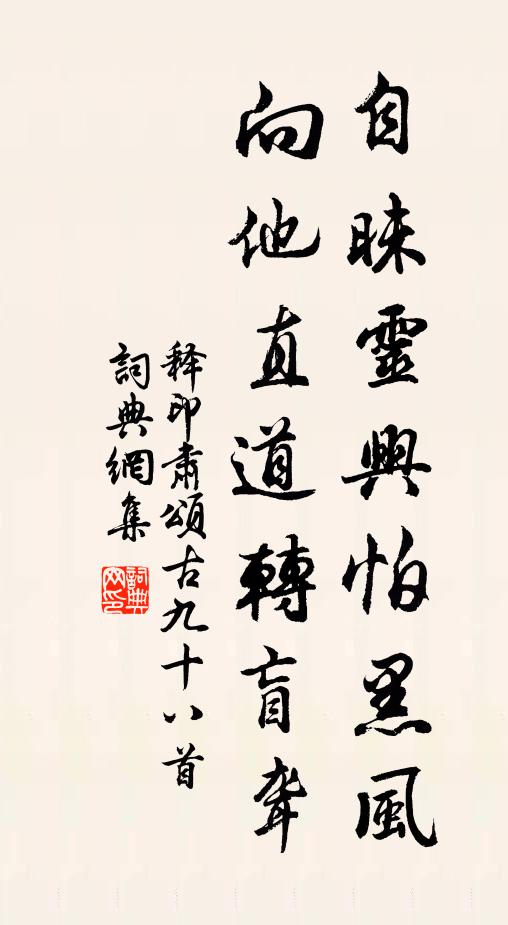 自昧靈興怕黑風
向他直道轉盲聾
释印肅頌古九十八首
詞典網集
詞典網印